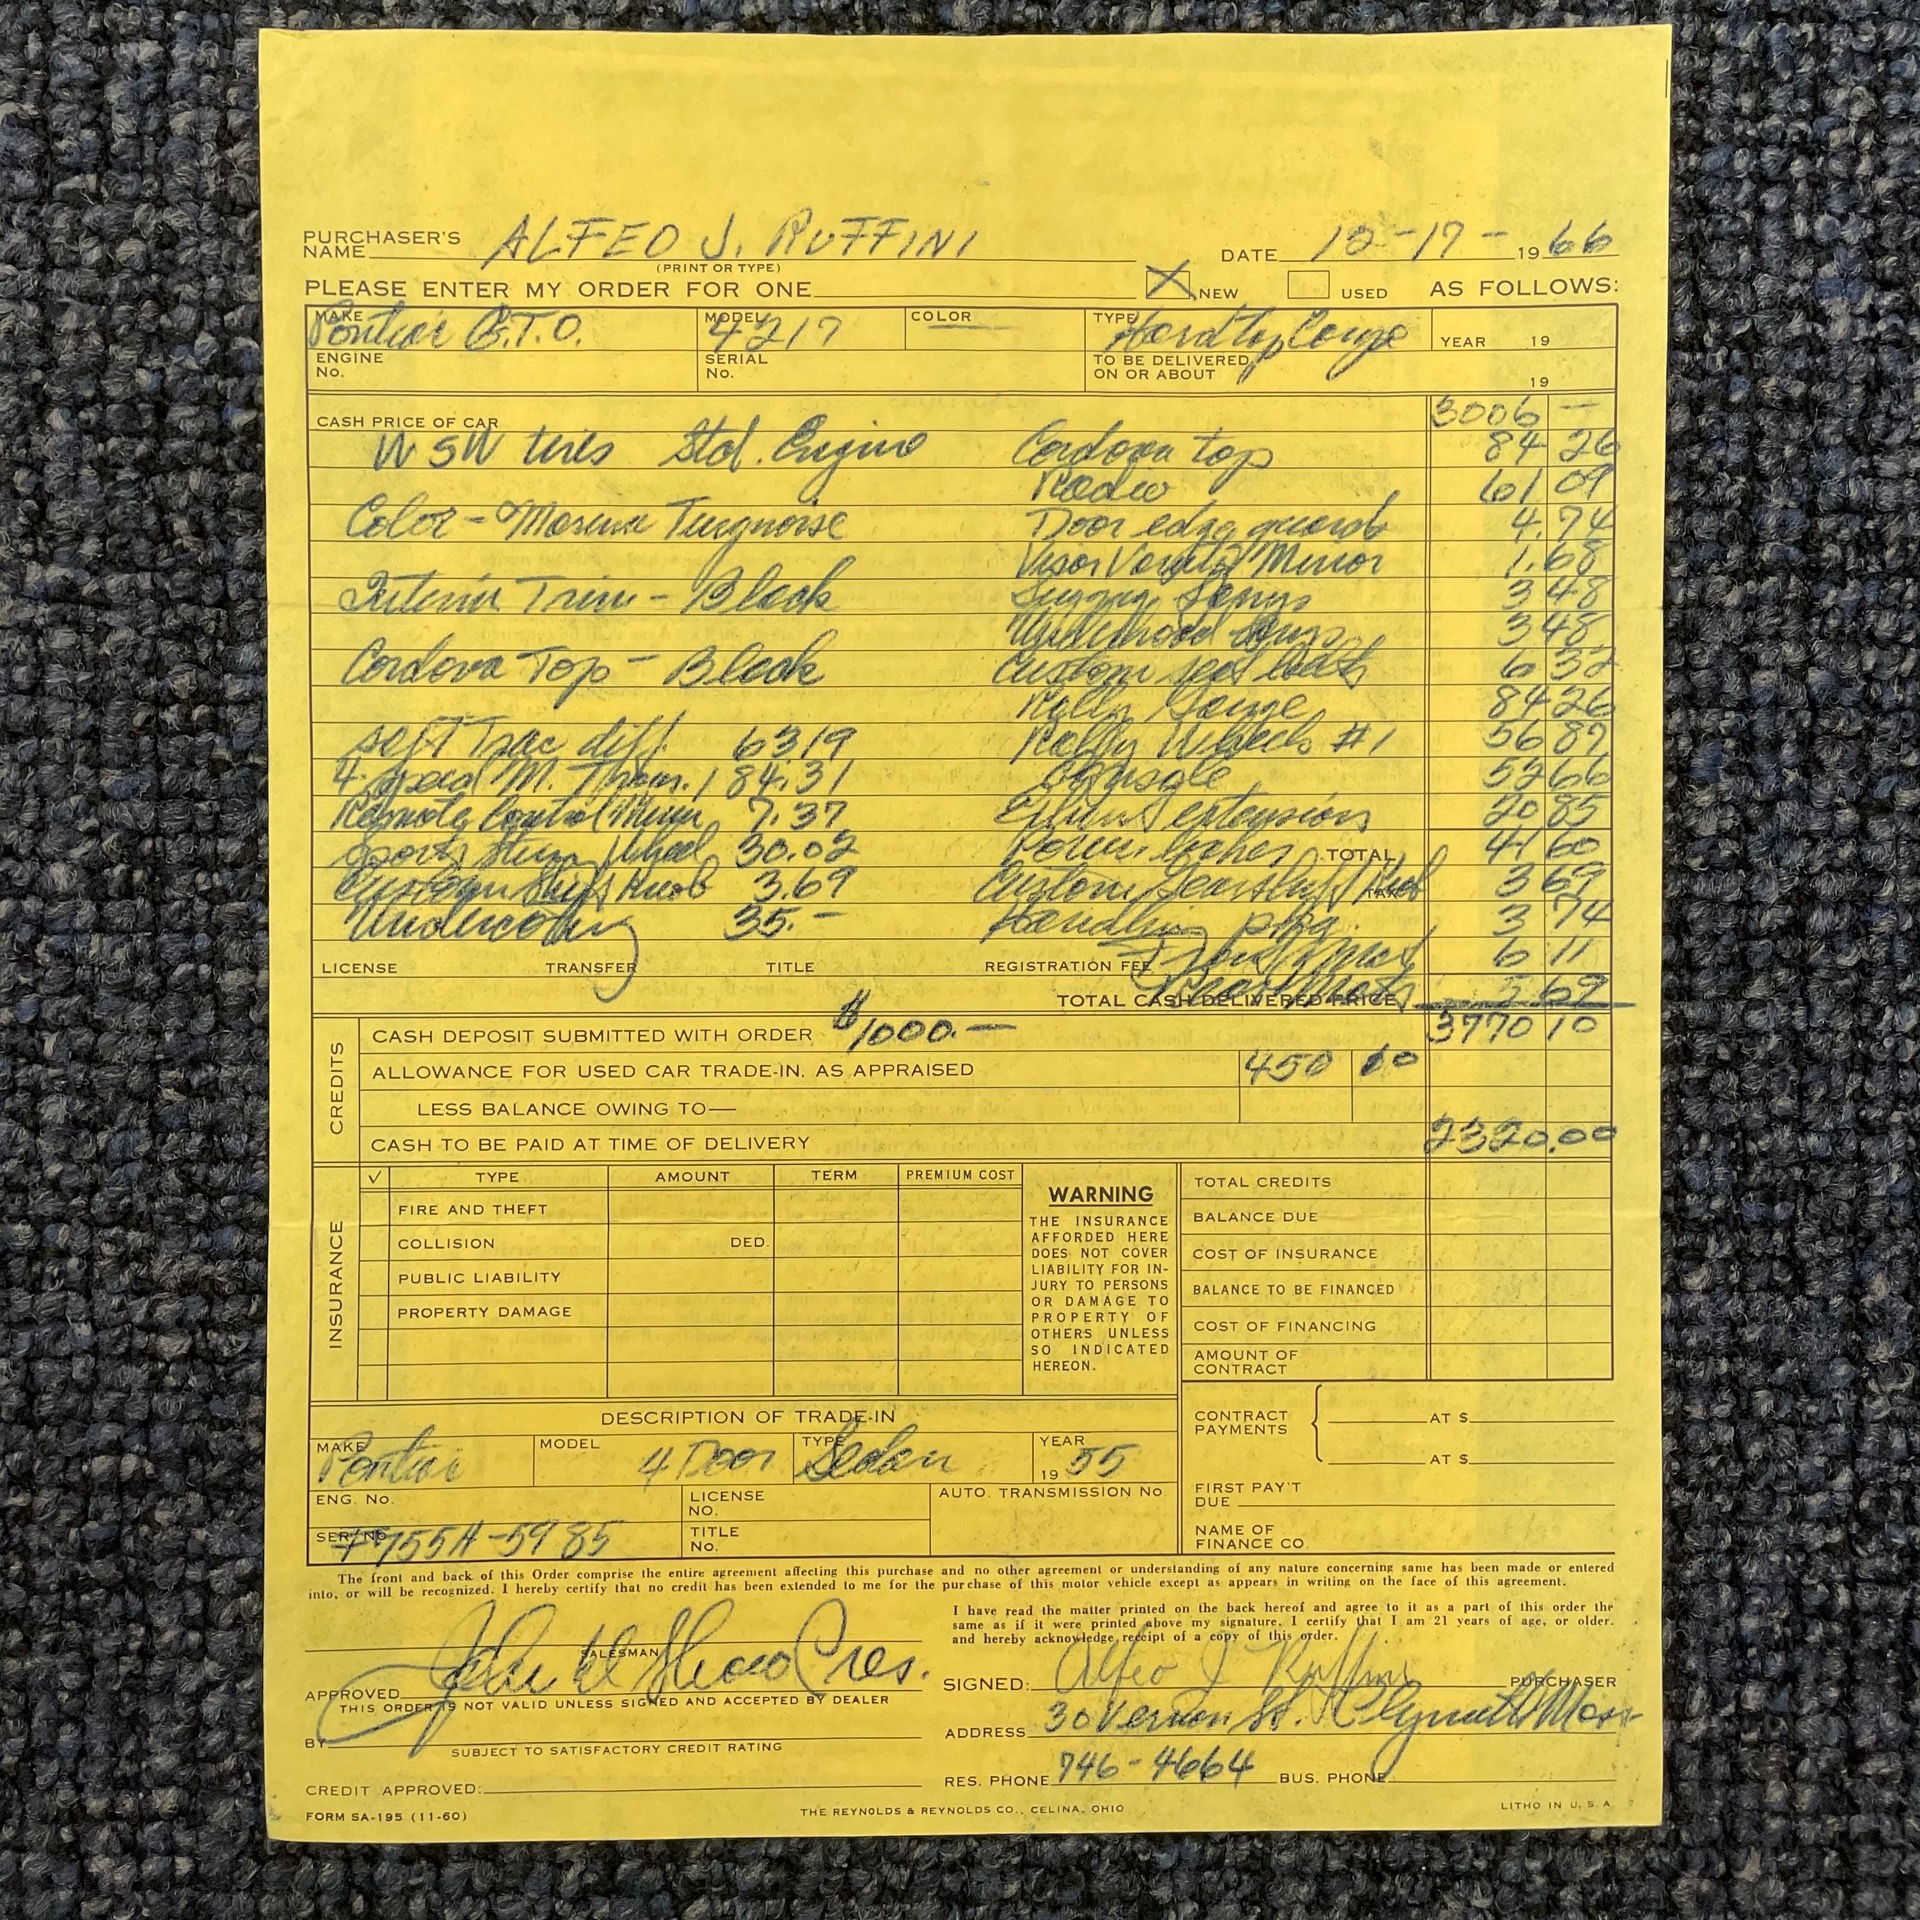 PURCHASER'S NAME ALFEO J. RUFFINI DATE 12-17- 1966
(PRINT OR TYPE)
PLEASE ENTER MY ORDER FOR ONE X NEW USED AS FOLLOWS:
MAKE Pontiac G.T.O. MODEL 4217 COLOR TYPE Hardtop Coupe YEAR 19
ENGINE No. SERIAL No. TO BE DELIVERED ON OR ABOUT 19
CASH PRICE OF CAR 3006 —
WSW tires Std. Engine Cordova top 84 26
Radio 61 09
Color - Marina Turquoise Door edge guards 4.74
Visor Vanity Mirror 1.68
Interior Trim - Black Luggage Lamps 3 48
Underhood Lamps 3 48
Cordova Top - Black Custom seat belts 6 32
Rally Gauge 84 26
Saf T Trac diff. 6319 Rally Wheels #1 56 87
4. speed M. Trans. 184.31 Console 52 66
Remote Control Mirror 7.37 extensions 20 85
Sports Steering Wheel 30.02 Power brakes TOTAL 41 60
Custom Shift Knob 3.69 Custom Gearshift Knob TAX 3 69
Undercoating 35.- Handling pkg. 3 74
LICENSE TRANSFER TITLE REGISTRATION FEE Front Mats 6 11
TOTAL CASH DELIVERED PRICE Rear Mats 5 69
3770 10
CREDITS
CASH DEPOSIT SUBMITTED WITH ORDER $1000.—
ALLOWANCE FOR USED CAR TRADE-IN, AS APPRAISED 450 10
LESS BALANCE OWING TO—
CASH TO BE PAID AT TIME OF DELIVERY 2320.00
INSURANCE
✓ TYPE AMOUNT TERM PREMIUM COST
FIRE AND THEFT
COLLISION DED.
PUBLIC LIABILITY
PROPERTY DAMAGE
WARNING
THE INSURANCE
AFFORDED HERE
DOES NOT COVER
LIABILITY FOR IN-
JURY TO PERSONS
OR DAMAGE TO
PROPERTY OF
OTHERS UNLESS
SO INDICATED
HEREON.
TOTAL CREDITS
BALANCE DUE
COST OF INSURANCE
BALANCE TO BE FINANCED
COST OF FINANCING
AMOUNT OF CONTRACT
DESCRIPTION OF TRADE-IN
MAKE Pontiac MODEL 4 Door TYPE Sedan YEAR 1955
ENG. No. LICENSE NO. AUTO. TRANSMISSION No.
SER. No. P755H-5985 TITLE No.
CONTRACT PAYMENTS AT $
AT $
FIRST PAY'T DUE
NAME OF FINANCE CO.
The front and back of this Order comprise the entire agreement affecting this purchase and no other agreement or understanding of any nature concerning same has been made or entered
into, or will be recognized. I hereby certify that no credit has been extended to me for the purchase of this motor vehicle except as appears in writing on the face of this agreement.
I have read the matter printed on the back hereof and agree to it as a part of this order the
same as if it were printed above my signature. I certify that I am 21 years of age, or older.
and hereby acknowledge receipt of a copy of this order.
SALESMAN
APPROVED John W Shea Pres.
THIS ORDER IS NOT VALID UNLESS SIGNED AND ACCEPTED BY DEALER
BY
SUBJECT TO SATISFACTORY CREDIT RATING
CREDIT APPROVED:
SIGNED: Alfeo J Ruffini PURCHASER
ADDRESS 30 Vernon St. Plymouth Mass
RES. PHONE 746-4664 BUS. PHONE
FORM SA-195 (11-60) THE REYNOLDS & REYNOLDS CO., CELINA, OHIO LITHO IN U.S.A.